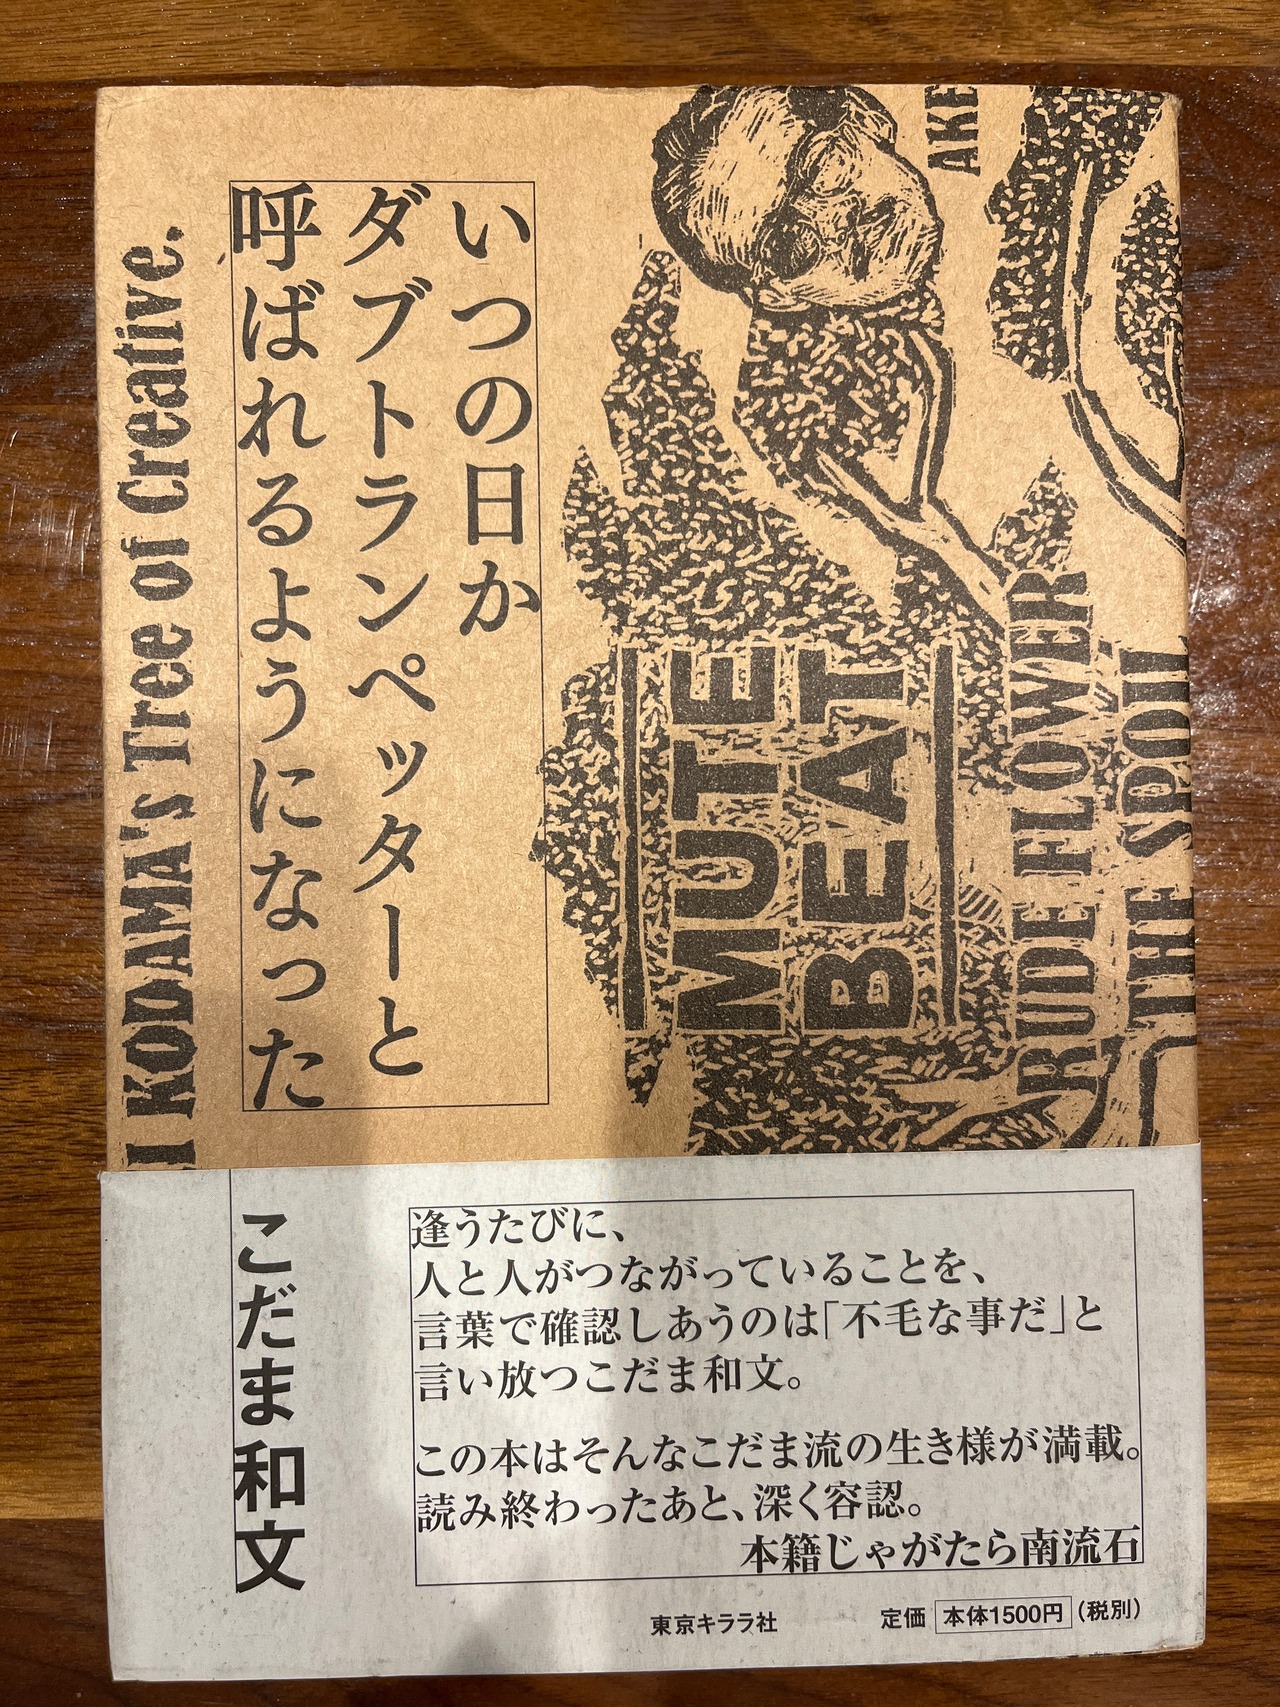 いつの日か
ダブトランペッターと
呼ばれるようになった
I KODAMA's Tree of Creative.
AKE
MUTE
BEAT
RUDE FLOWER
THE SPOIL
こだま和文
逢うたびに、
人と人がつながっていることを、
言葉で確認しあうのは「不毛な事だ」と
言い放つこだま和文。
この本はそんなこだま流の生き様が満載。
読み終わったあと、深く容認。
本籍じゃがたら南流石
東京キララ社
定価 本体1500円 (税別)